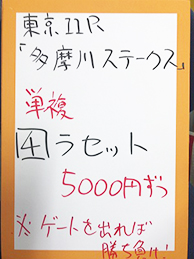 東京11R
「多摩川ステークス」
単複
4 ラセット
5000円ずつ
※ゲートを出れば
勝ち負け!